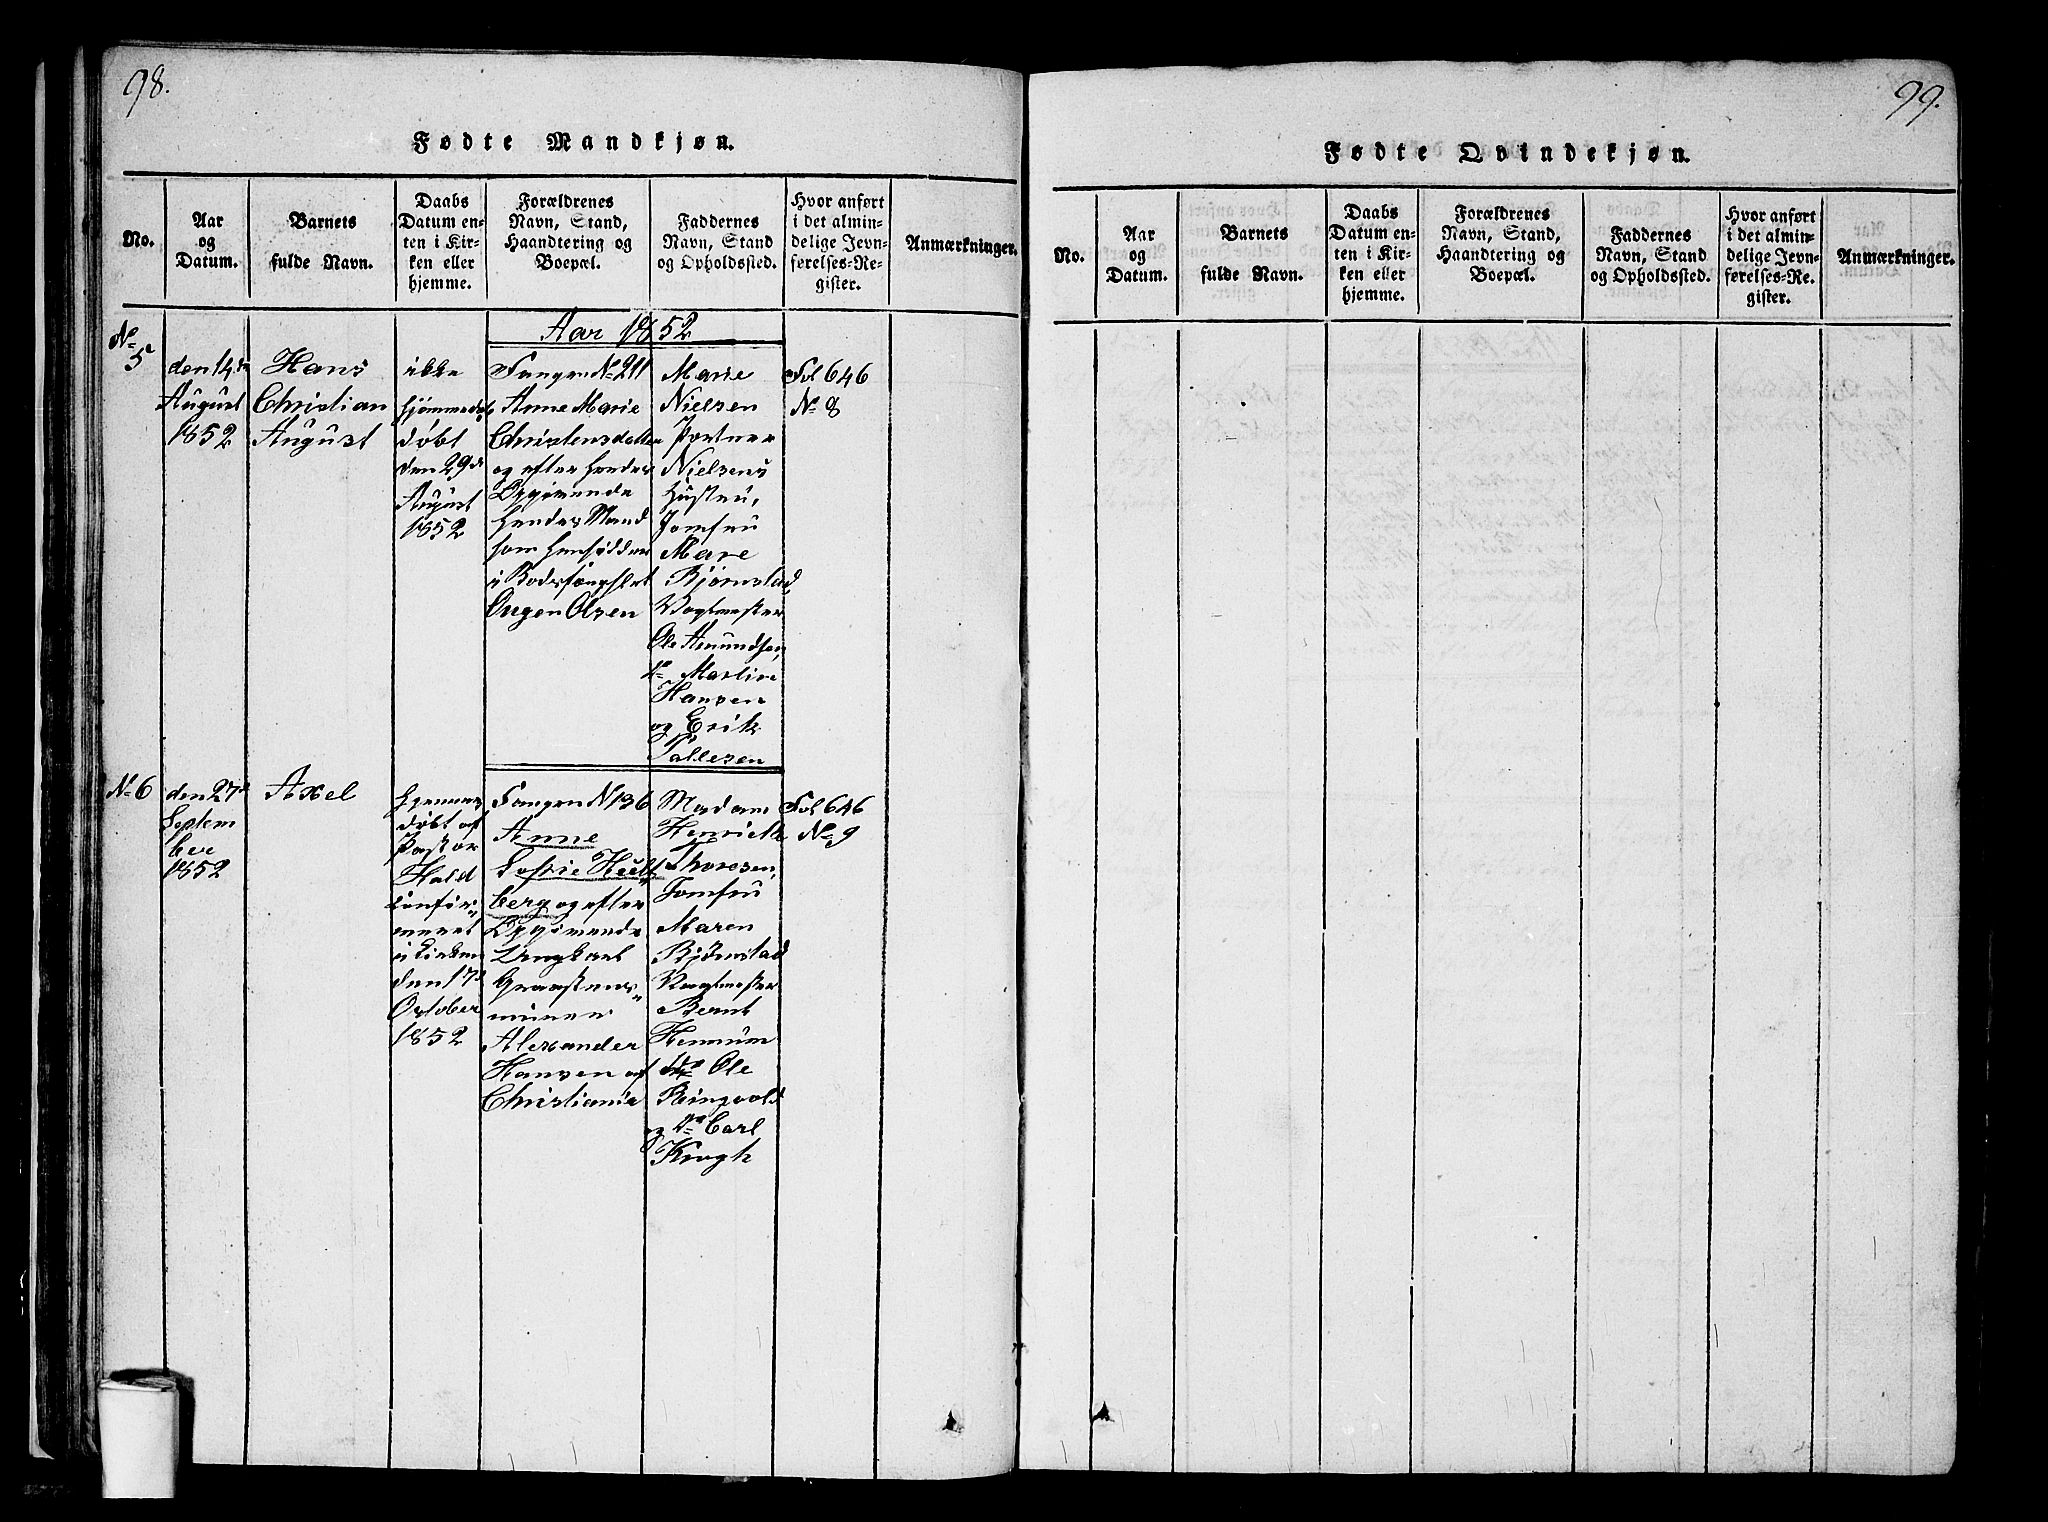 98.
Fødte Mandkjøn.
No.
Aar
og
Datum.
Barnets
fulde Navn.
Daabs
Datum en-
ten i Kir-
ken eller
hjemme.
Forældrenes
Navn, Stand,
Haandtering og
Boepæl.
Faddernes
Navn, Stand
og Opholdssted.
Hvor anført
i det almin-
delige Jevn-
førelses-Re-
gister.
Anmærkninger.
Aar 1852
No
5
den 14de
August
1852
Hans
Christian
August
ikke
hjemmedøbt
døbt
den 29de
August
1852
Fangen No 211
Anne Marie
Christensdatter
og efter hendes
Opgivende
hendes Mand
som hensidder
i Bodsfængslet
Eugen Olsen
Marie
Nielsen
Portner
Nielsens
Hustru,
Jomfru
Mare
Bjørnstad,
Vagtmester
Ole Amundsen,
do Martin
Hansen
og Erik
Pallesen
Fol 646
No 8
No 6
den 27de
Septem
ber
1852
Axel
hjemme
døbt af
Pastor
Hald
Confir"
meret
i Kirken
den 17de
October
1852
Fangen N 136
Anne
Sofie Heilt"
berg og efter
Opgivende
Ungkarl
Graasteens"
murer
Alexander
Hansen af
Christiania
Madam
Henriette
Thoresen,
Jomfru
Maren
Bjørnstad
Vagtmester
Bernt
Hennüm
do Ole
Ringvold
og do Carl
Krogh
Fol 646
No 9
99.
Fødte Qvindekjøn.
No.
Aar
og
Datum.
Barnets
fulde Navn.
Daabs
Datum en-
ten i Kir-
ken eller
hjemme.
Forældrenes
Navn, Stand,
Haandtering og
Boepæl.
Faddernes
Navn, Stand
og Opholdssted.
Hvor anført
i det almin-
delige Jevn-
førelses-Re-
gister.
Anmærkninger.